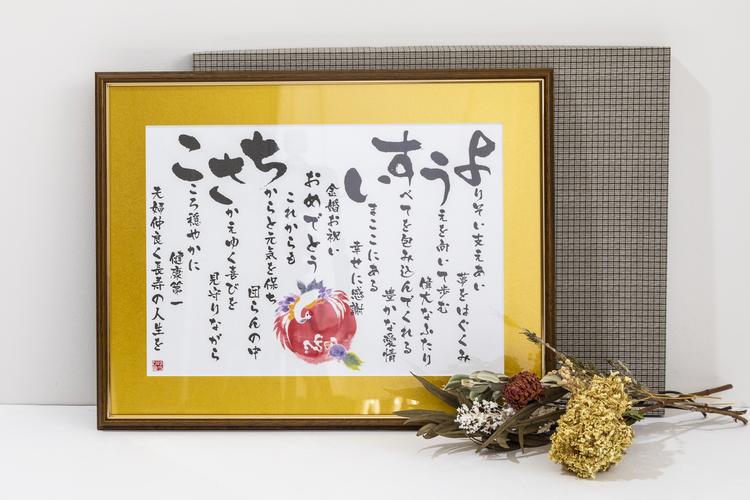 よりそい支えあい
夢をはぐくみ
うえを向いて歩む
偉大なふたり
すべてを包み込んでくれる
豊かな愛情
いまここにある
幸せに感謝
金婚お祝い
おめでとう
これからも
ちからと元気を保ち
団らんの中
さかえゆく喜びを
見守りながら
こころ穏やかに
健康第一
夫婦仲良く長寿の人生を